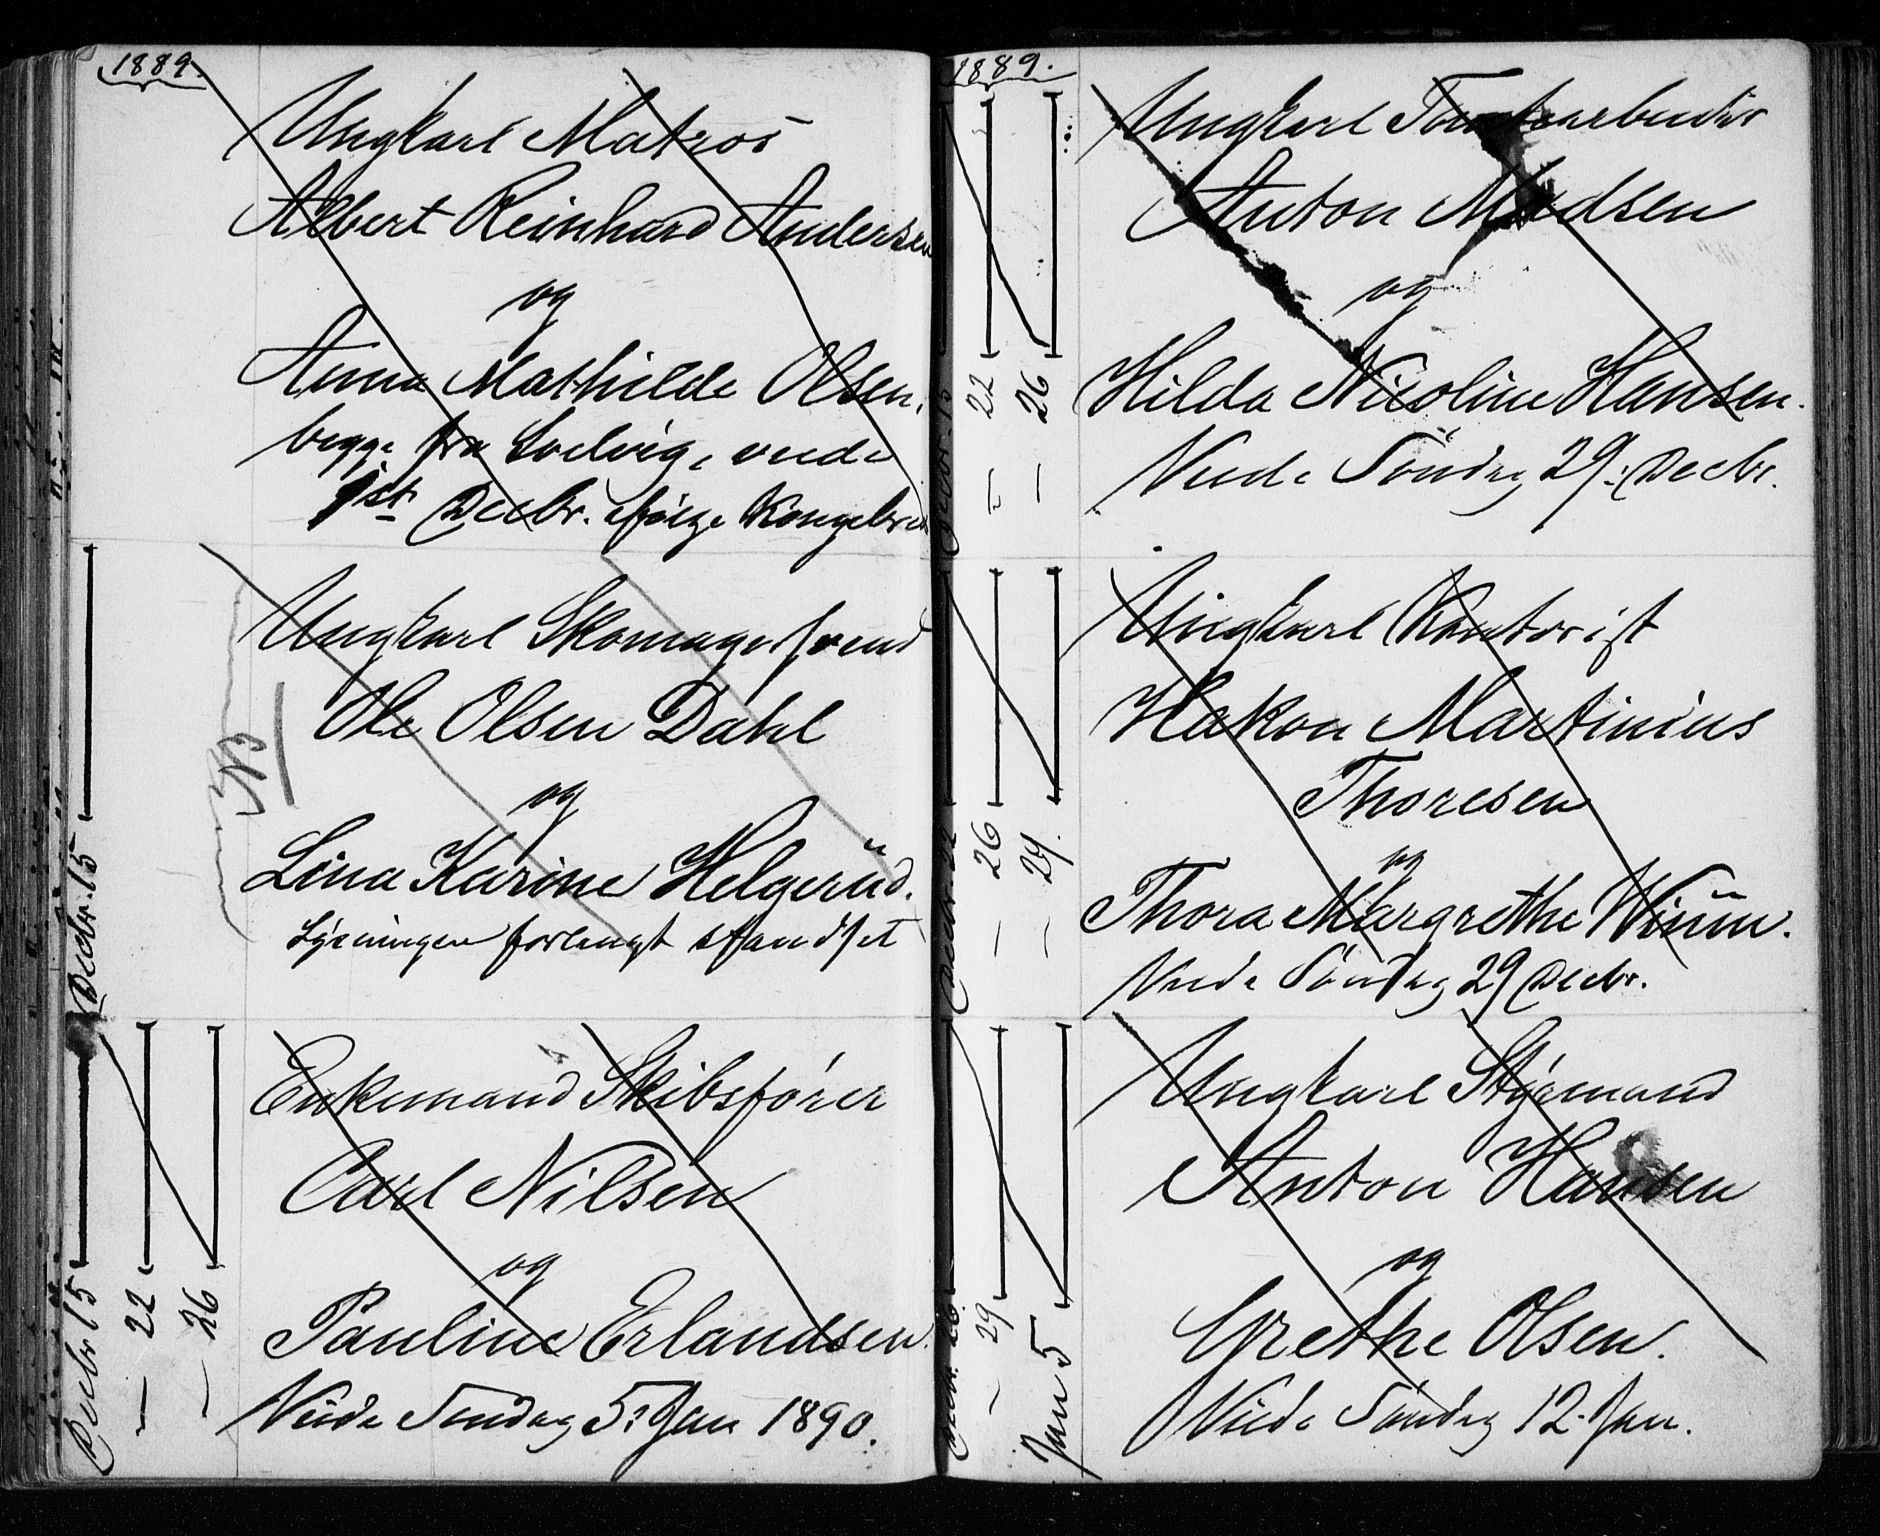 1889.
Ungkarl Matros
Albert Reinhard Andersen
og
Anna Mathilde Olsen,
begge fra Solvig, viede
1st Decbr. ifølge Kongebrev
Decbr. 15
Ungkarl Skomagersvend
Ole Olsen Dahl
og
Lina Karine Helgerud.
Lysningen forlangt standset
NB
Decbr 15
— 22
— 26
Enkemand Skibsfører
Carl Nilsen
og
Pauline Erlandsen.
Viede Søndag 5: Jan 1890.
1889.
Decbr. 15
— 22
— 26
Ungkarl Tomtearbeider
Anton Madsen
og
Hilda Nicoline Hansen.
Viede Søndag 29. Decbr.
Decbr. 22
— 26
— 29.
Ungkarl Kontorist
Hakon Martinius
Thoresen
og
Thora Margrethe Wium.
Viede Søndag 29 Decbr.
Decbr. 26
— 29
Jan 5
Ungkarl Styrmand
Anton Hansen
og
Grethe Olsen.
Viede Søndag 12. Jan.